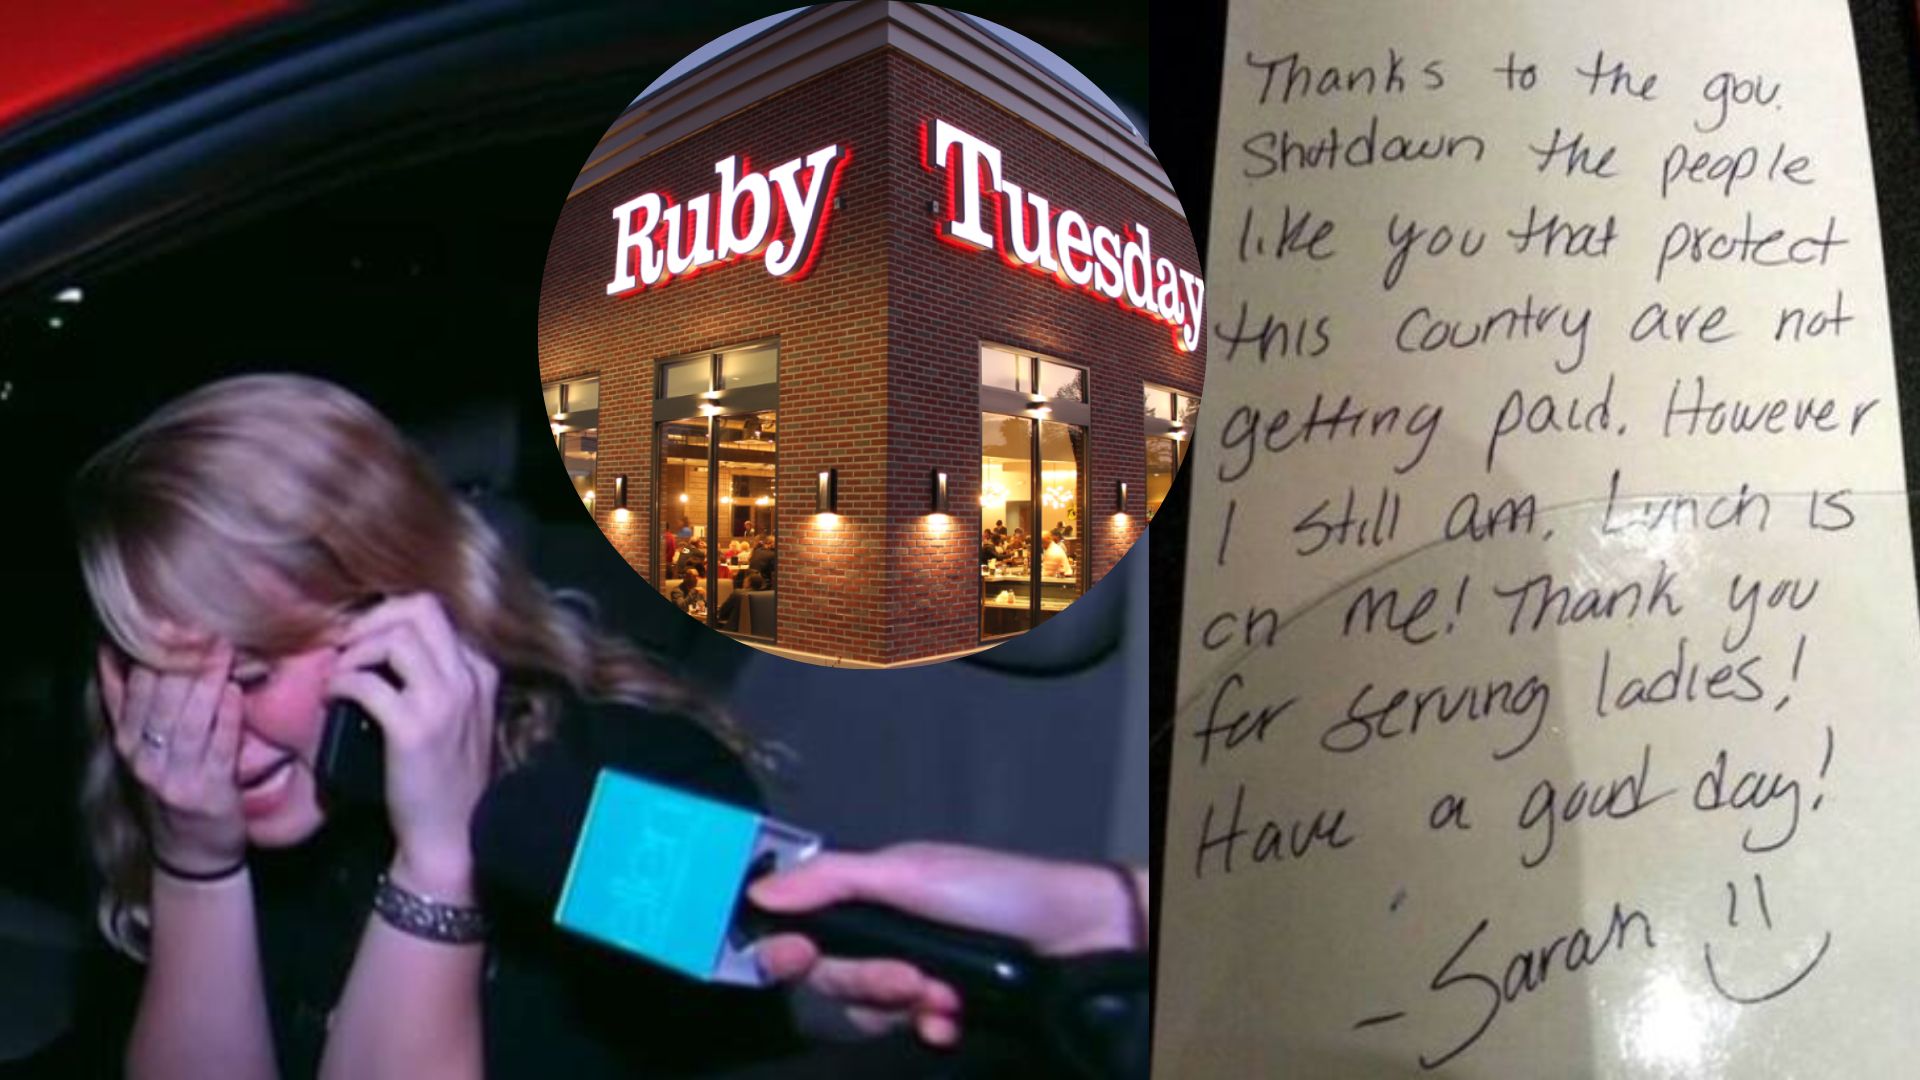 Ruby Tuesday
Thanks to the gov.
Shutdown the people
like you that protect
this country are not
getting paid. However
I still am. Lunch is
on me! Thank you
for serving ladies!
Have a good day!
-Sarah